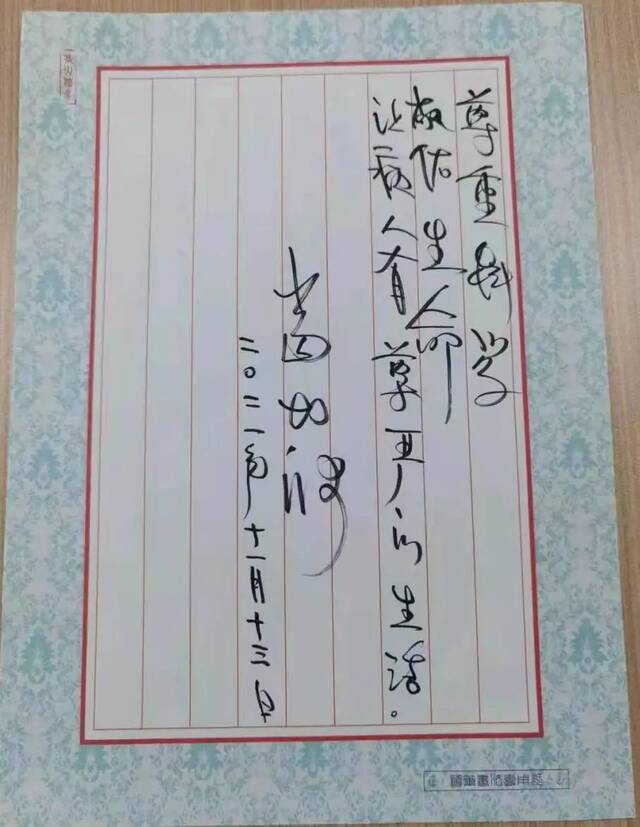 尊重科学
敬佑生命
让病人有尊严的生活。
二〇二一年十一月十三日